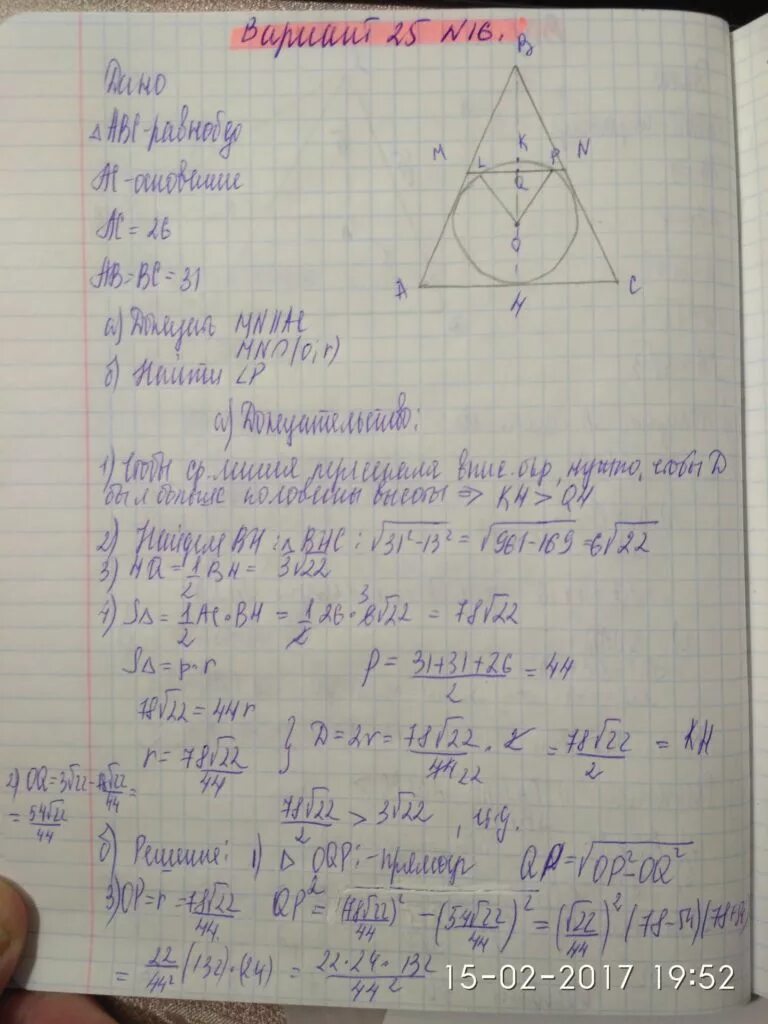 Вариант 25 №16.
Дано
△ ABC-равнобд
AC-основание
AC = 26
AB=BC=31
а) Доказать MN||AC
MN∩(O;r)
б) Найти LP
B
M L K P N
Q
O
A C
H
а) Доказательство:
1) Чтобы ср.линия пересекала впис.окр, нужно, чтобы D
был больше половины высоты ⇒ KH > QH
2) Найдем BH: △BHC: √31²-13² = √961-169 = 6√22
3) HQ = 1/2 BH = 3√22
4) S△ = 1/2 AC·BH = 1/2 26·6√22 = 78√22
S△ = p·r p = 31+31+26/2 = 44
78√22 = 44r
r = 78√22/44 } D = 2r = 78√22/44 · 2 = 78√22/2 = KH
2) OQ = 3√22 - 78√22/44 =
= 54√22/44
78√22/2 > 3√22, ч.д.
б) Решение: 1) △ OQP:-прямоуг QP = √OP²-OQ²
3) OP = r = 78√22/44 QP² = √(78√22/44)² - (54√22/44)² = (√22/44)² (78-54)(78+54)
= 22/44² (132)·(24) = 22·24·132/44²
15-02-2017 19:52